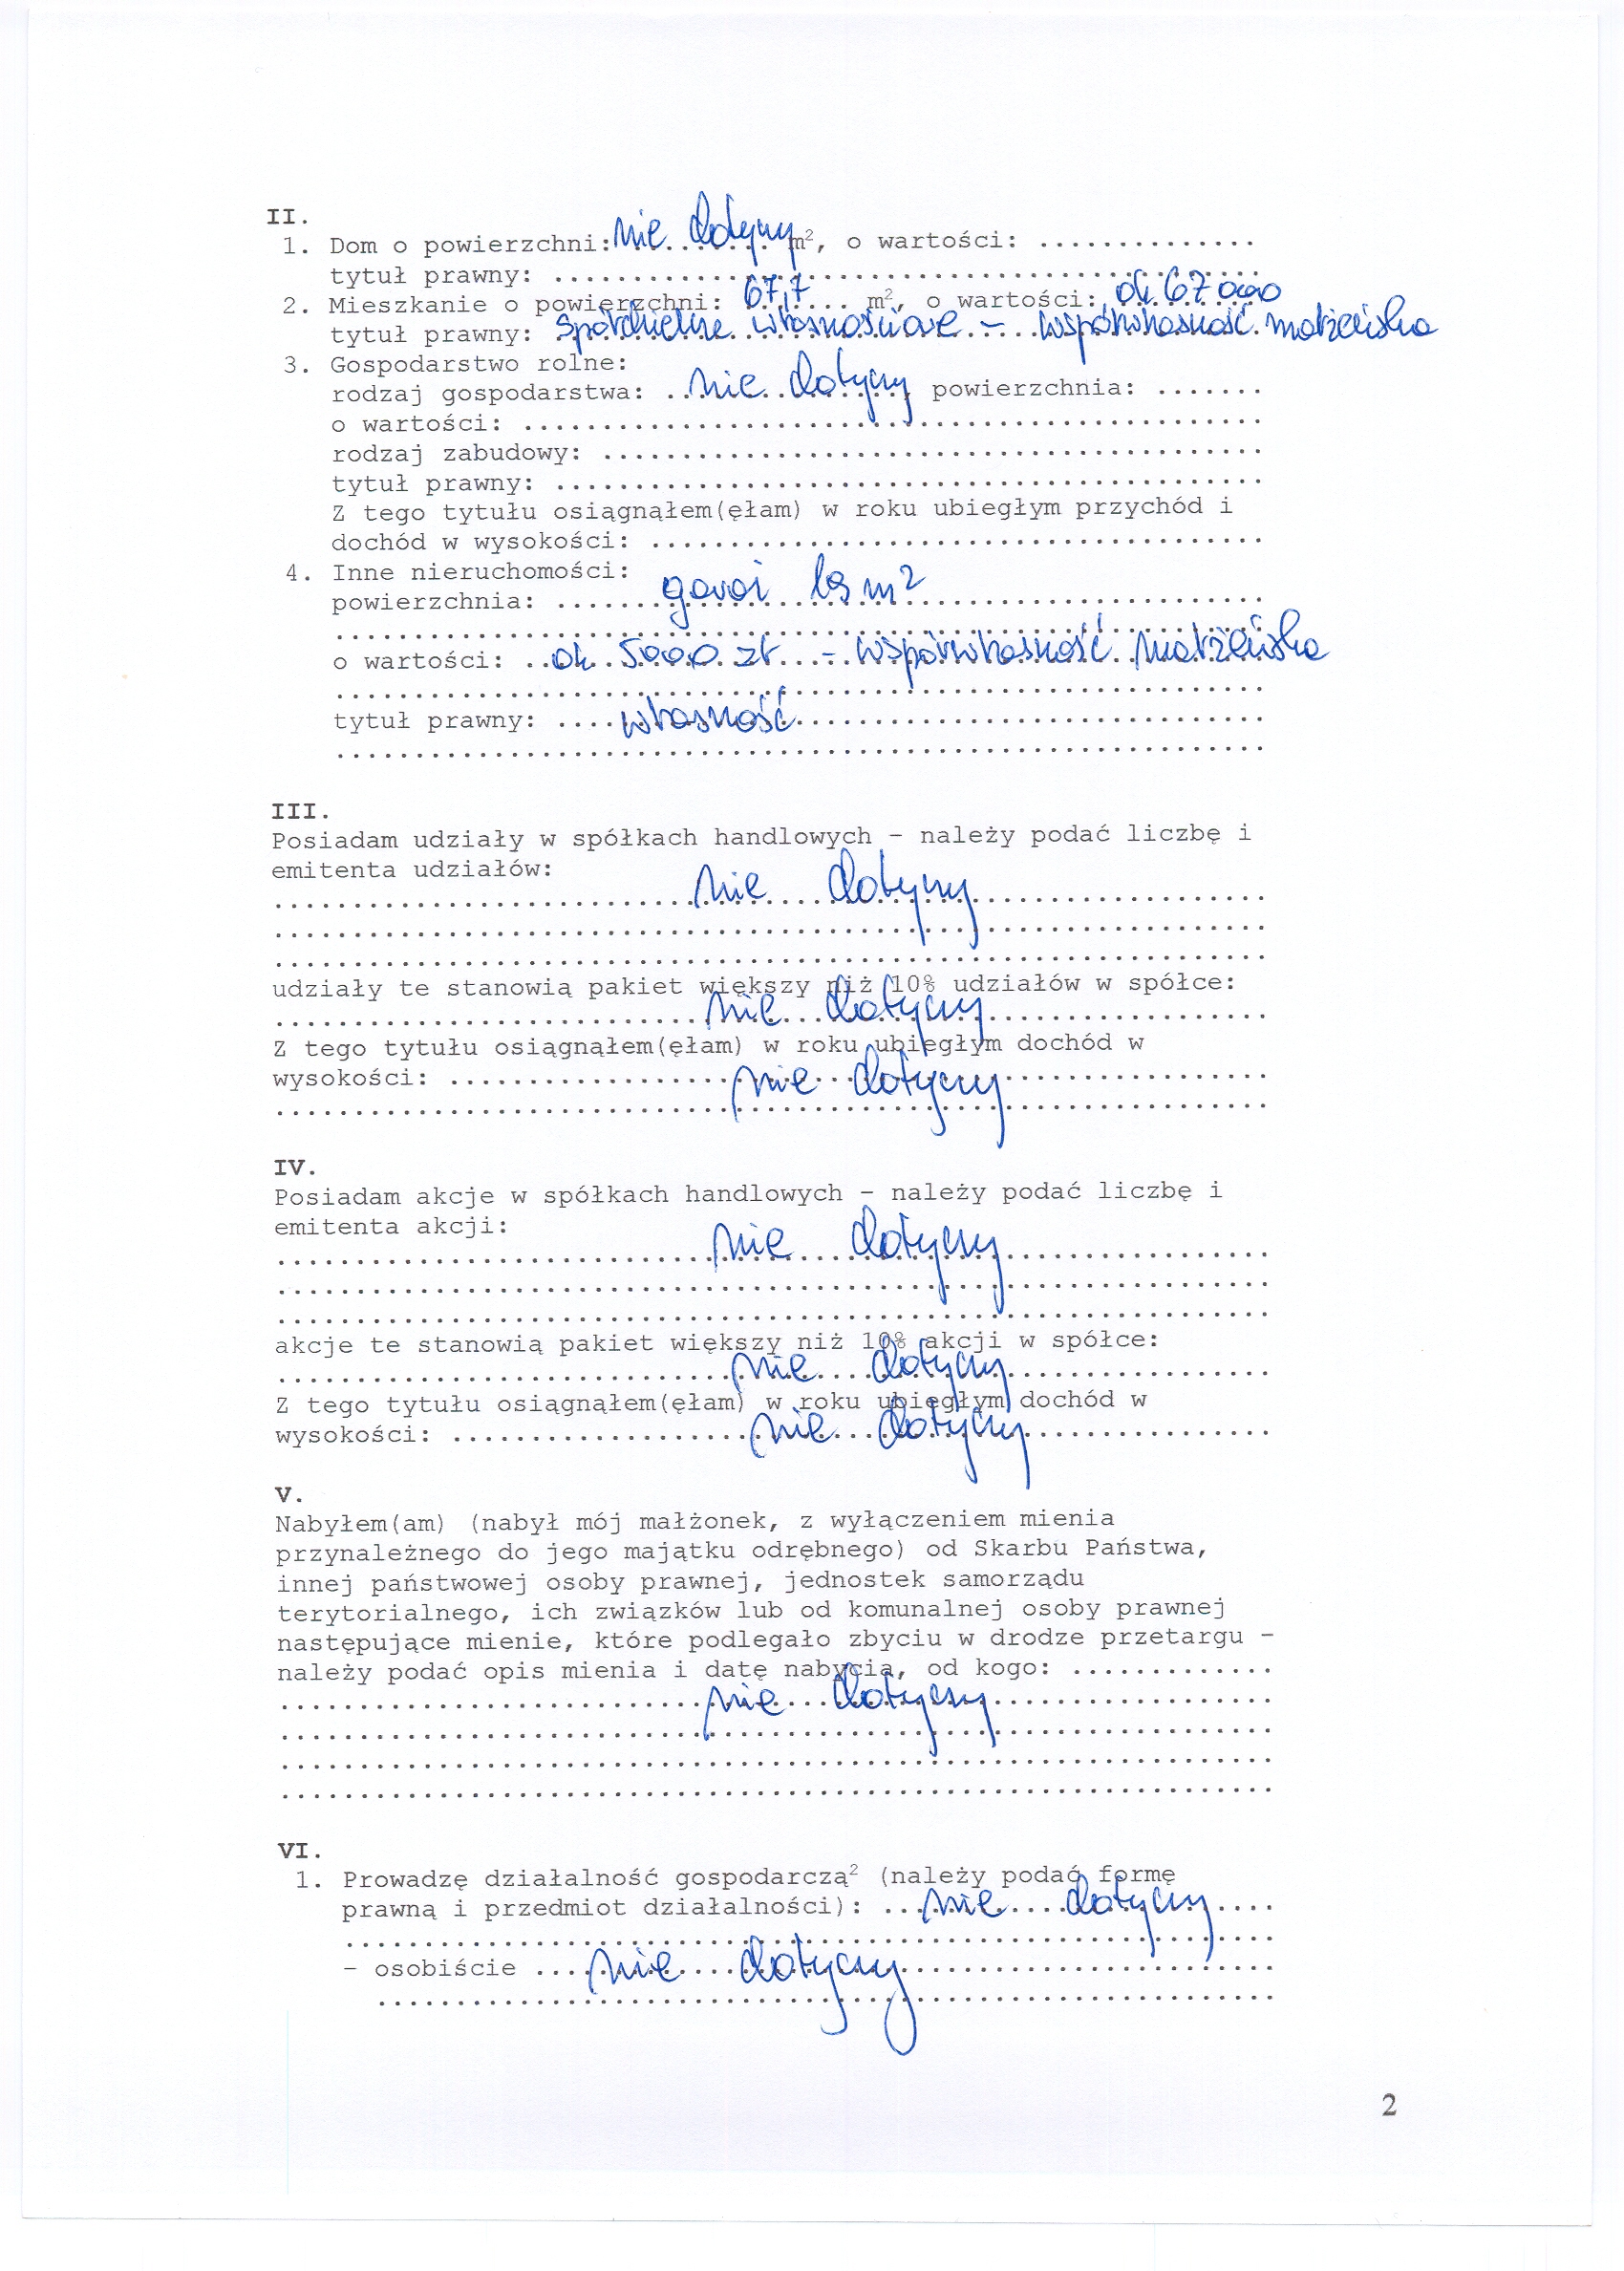 II.
1. Dom o powierzchni: nie dotyczy m², o wartości: ..............
tytuł prawny: .............................................
2. Mieszkanie o powierzchni: 67,7 m², o wartości: ok 67 000
tytuł prawny: spółdzielcze własnościowe - współwłasność małżeńska
3. Gospodarstwo rolne:
rodzaj gospodarstwa: nie dotyczy, powierzchnia: .......
o wartości: ...............................................
rodzaj zabudowy: ..........................................
tytuł prawny: .............................................
Z tego tytułu osiągnąłem(ęłam) w roku ubiegłym przychód i
dochód w wysokości: .......................................
4. Inne nieruchomości:
powierzchnia: garaż m²
...........................................................
o wartości: ok 5000 zł - współwłasność małżeńska
...........................................................
tytuł prawny: własność
...........................................................
III.
Posiadam udziały w spółkach handlowych - należy podać liczbę i
emitenta udziałów:
nie dotyczy
...............................................................
...............................................................
udziały te stanowią pakiet większy niż 10% udziałów w spółce:
nie dotyczy
Z tego tytułu osiągnąłem(ęłam) w roku ubiegłym dochód w
wysokości: nie dotyczy
...............................................................
IV.
Posiadam akcje w spółkach handlowych - należy podać liczbę i
emitenta akcji:
nie dotyczy
...............................................................
...............................................................
akcje te stanowią pakiet większy niż 10% akcji w spółce:
nie dotyczy
Z tego tytułu osiągnąłem(ęłam) w roku ubiegłym dochód w
wysokości: nie dotyczy
V.
Nabyłem(am) (nabył mój małżonek, z wyłączeniem mienia
przynależnego do jego majątku odrębnego) od Skarbu Państwa,
innej państwowej osoby prawnej, jednostek samorządu
terytorialnego, ich związków lub od komunalnej osoby prawnej
następujące mienie, które podlegało zbyciu w drodze przetargu -
należy podać opis mienia i datę nabycia, od kogo: .............
nie dotyczy
...............................................................
...............................................................
...............................................................
VI.
1. Prowadzę działalność gospodarczą² (należy podać formę
prawną i przedmiot działalności): nie dotyczy
...........................................................
- osobiście nie dotyczy
.........................................................
2